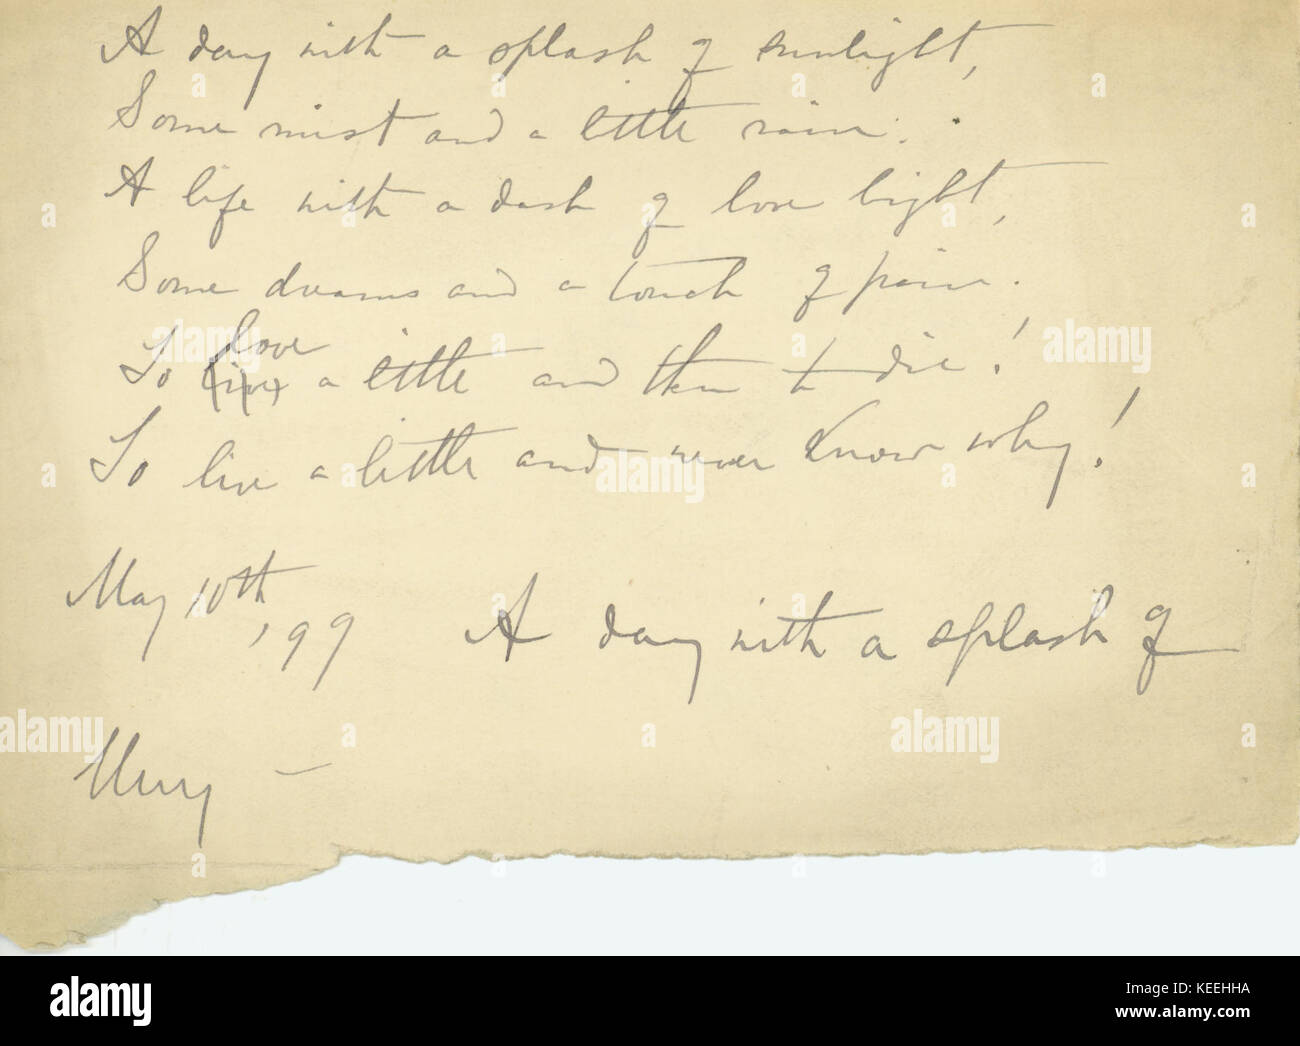 A day with a splash of sunlight,
Some mist and a little rain.
A life with a dash of love light,
Some dreams and a touch of pain.
To love a little and then to die!
To live a little and never know why!
May 10th, '99
A day with a splash of
alamy
Image ID: KEEHHA
www.alamy.com